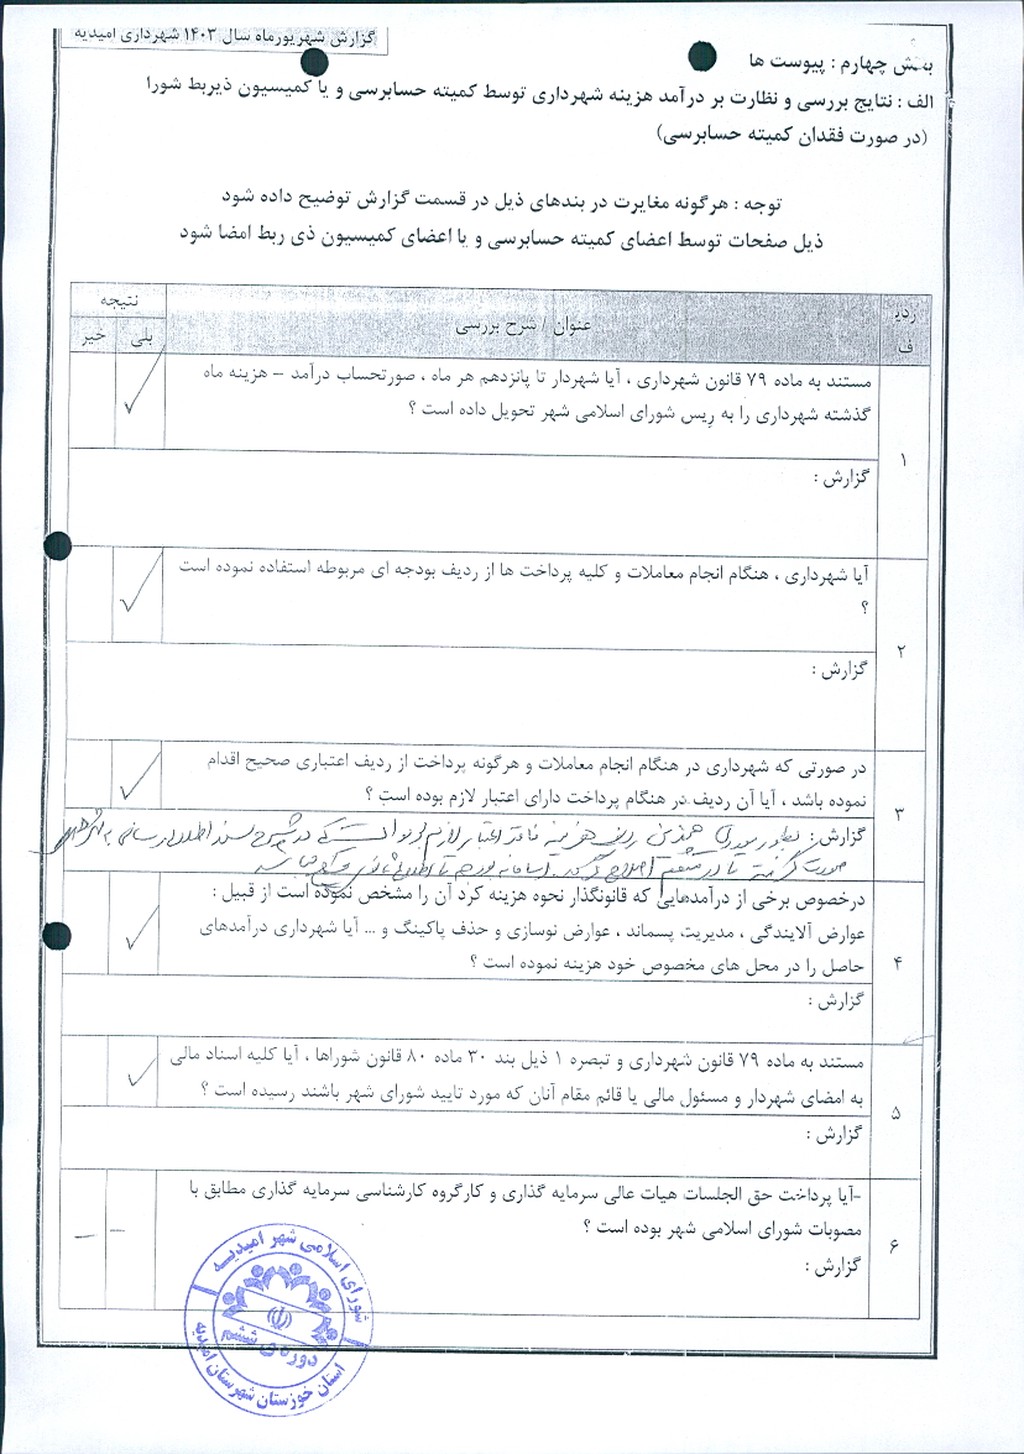 گزارش شهریورماه سال ۱۴۰۳ شهرداری امیدیه
بخش چهارم : پیوست ها
الف : نتایج بررسی و نظارت بر درآمد هزینه شهرداری توسط کمیته حسابرسی و یا کمیسیون ذیربط شورا
(در صورت فقدان کمیته حسابرسی)
توجه : هرگونه مغایرت در بندهای ذیل در قسمت گزارش توضیح داده شود
ذیل صفحات توسط اعضای کمیته حسابرسی و یا اعضای کمیسیون ذی ربط امضا شود
ردیف
عنوان / شرح بررسی
نتیجه
بلی
خیر
۱
مستند به ماده ۷۹ قانون شهرداری ، آیا شهردار تا پانزدهم هر ماه ، صورتحساب درآمد – هزینه ماه
گذشته شهرداری را به رِیس شورای اسلامی شهر تحویل داده است ؟
✓
گزارش :
۲
آیا شهرداری ، هنگام انجام معاملات و کلیه پرداخت ها از ردیف بودجه ای مربوطه استفاده نموده است
؟
✓
گزارش :
۳
در صورتی که شهرداری در هنگام انجام معاملات و هرگونه پرداخت از ردیف اعتباری صحیح اقدام
نموده باشد ، آیا آن ردیف در هنگام پرداخت دارای اعتبار لازم بوده است ؟
✓
گزارش : بطور موردی چندین ردیف هزینه فاقد اعتبار لازم
صورت گرفته تا
۴
درخصوص برخی از درآمدهایی که قانونگذار نحوه هزینه کرد آن را مشخص نموده است از قبیل :
عوارض آلایندگی ، مدیریت پسماند ، عوارض نوسازی و حذف پاکینگ و ... آیا شهرداری درآمدهای
حاصل را در محل های مخصوص خود هزینه نموده است ؟
✓
گزارش :
۵
مستند به ماده ۷۹ قانون شهرداری و تبصره ۱ ذیل بند ۳۰ ماده ۸۰ قانون شوراها ، آیا کلیه اسناد مالی
به امضای شهردار و مسئول مالی یا قائم مقام آنان که مورد تایید شورای شهر باشند رسیده است ؟
✓
گزارش :
۶
-آیا پرداخت حق الجلسات هیات عالی سرمایه گذاری و کارگروه کارشناسی سرمایه گذاری مطابق با
مصوبات شورای اسلامی شهر بوده است ؟
– –
گزارش :
شورای اسلامی شهر امیدیه
دوره ی ششم
استان خوزستان شهرستان امیدیه